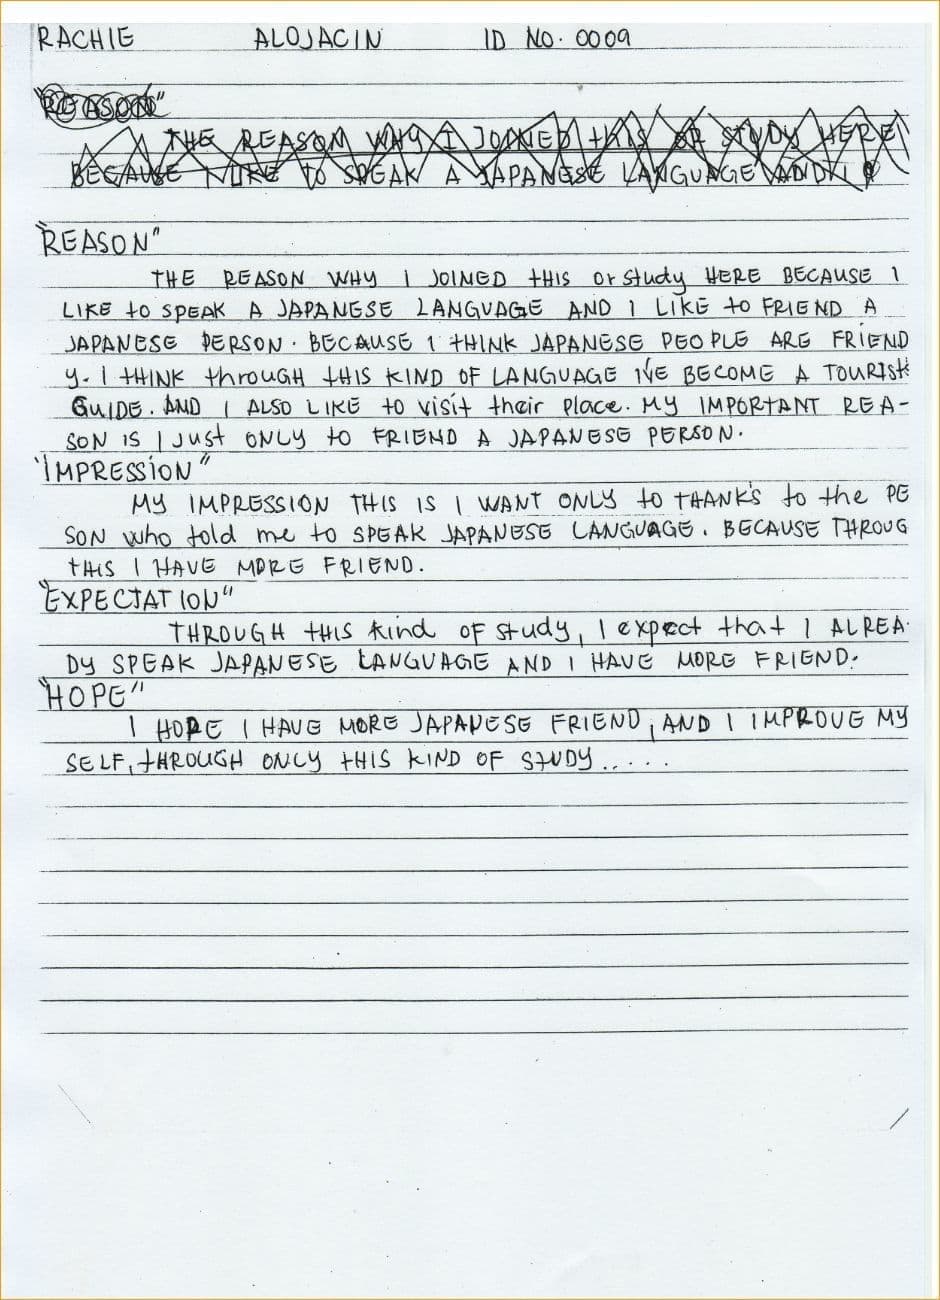 RACHIE ALOJACIN ID NO. 0009
"REASON"
THE REASON WHY I JOINED tHIS OR STUDY HERE
BECAUSE I LIKE TO SPEAK A JAPANESE LANGUAGE AND I
"REASON"
THE REASON WHY I JOINED tHIS Or Study HERE BECAUSE I
LIKE to SPEAK A JAPANESE LANGUAGE AND I LIKE to FRIEND A
JAPANESE PERSON. BECAUSE I tHINK JAPANESE PEOPLE ARE FRIEND
y. I tHINK through tHIS KIND OF LANGUAGE I'VE BECOME A TOURISt
GUIDE. AND I ALSO LIKE to visit their Place. MY IMPORTANT REA-
SON IS I Just ONLY to FRIEND A JAPANESE PERSON.
"IMPRESSION"
MY IMPRESSION THIS IS I WANT ONLY to tHANK'S to the PE
SON who told me to SPEAK JAPANESE LANGUAGE. BECAUSE THROUG
tHIS I HAVE MORE FRIEND.
"EXPECTATION"
THROUGH tHIS kind OF study, I expect that I ALREA-
DY SPEAK JAPANESE LANGUAGE AND I HAVE MORE FRIEND.
"HOPE"
I HOPE I HAVE MORE JAPANESE FRIEND, AND I IMPROVE MY
SELF, tHROUGH ONLY tHIS KIND OF STUDY.....